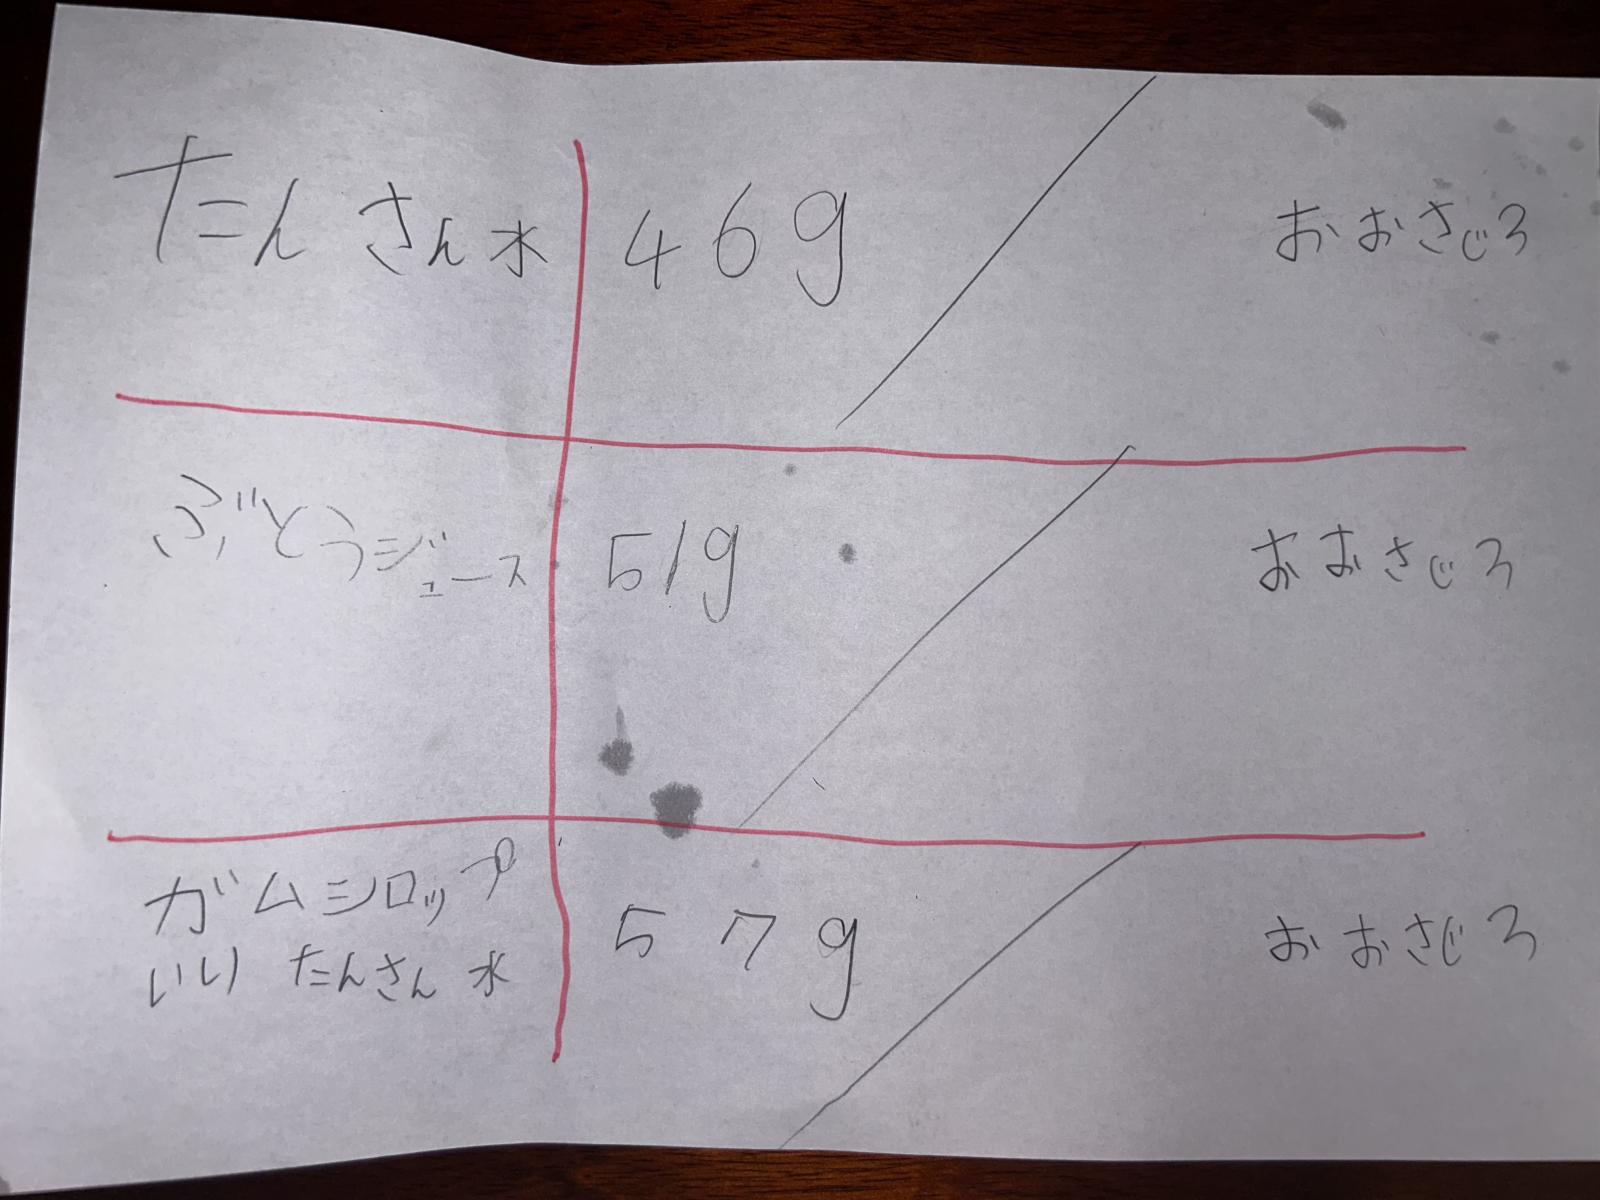 たんさん水 46g おおさじ3
ぶどうジュース 51g おおさじ3
ガムシロップ
いり たんさん水 57g おおさじ3